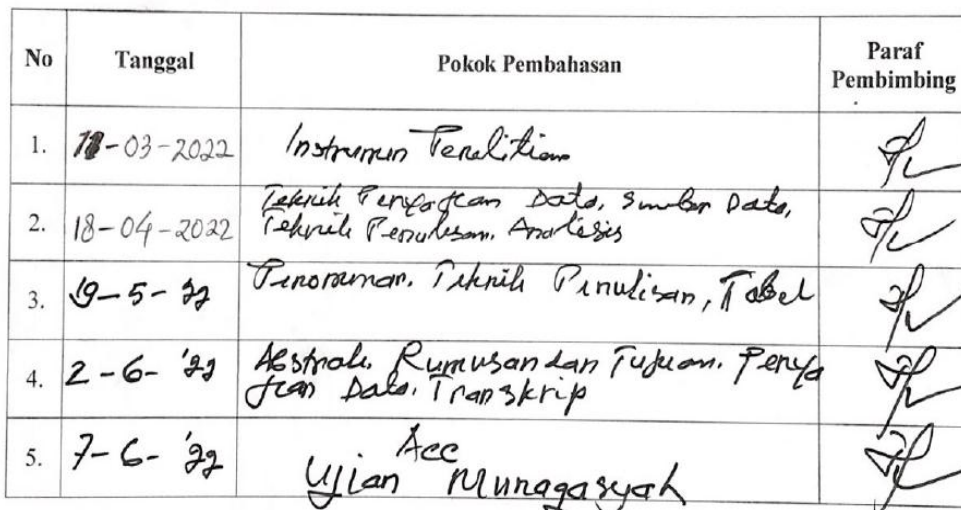 No Tanggal Pokok Pembahasan Paraf Pembimbing
1. 11-03-2022 Instrumen Penelitian
2. 18-04-2022 Teknik Penyajian Data, Sumber Data,
Teknik Penulisan, Analisis
3. 19-5-22 Penomoran, Teknik Penulisan, Tabel
4. 2-6-'22 Abstrak, Rumusan dan Tujuan, Penya
jian Data, Transkrip
5. 7-6-'22 Acc
Ujian Munaqasyah